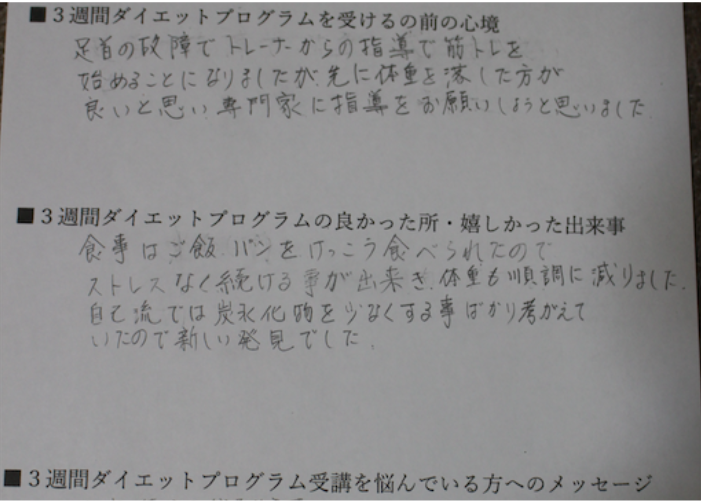 ■３週間ダイエットプログラムを受けるの前の心境
足首の故障でトレーナーからの指導で筋トレを
始めることになりましたが、先に体重を落した方が
良いと思い、専門家に指導をお願いしようと思いました。
■３週間ダイエットプログラムの良かった所・嬉しかった出来事
食事はご飯、パンをけっこう食べられたので
ストレスなく続ける事が出来き、体重も順調に減りました。
自己流では炭水化物を少なくする事ばかり考がえて
いたので新しい発見でした。
■３週間ダイエットプログラム受講を悩んでいる方へのメッセージ